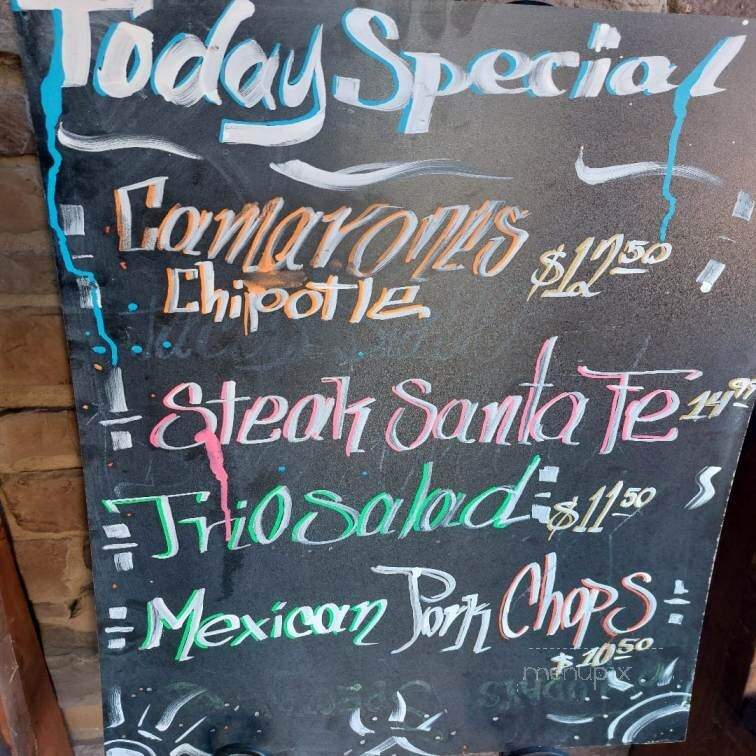 Today Special
Camarones
Chipotle $12.50
Steak Santa Fe 14.95
Trio Salad $11.50
Mexican Pork Chops
$10.50
menupix